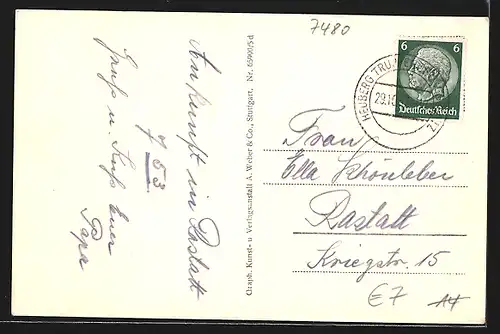 7480
Ankunft in Rastatt
9 53
Gruß u. Kuß Euer
Papa
Graph. Kunst- u Verlagsanstalt A. Weber & Co., Stuttgart. Nr. 6590/5d
HEUBERG TRU
29.10
6 6
Deutsches Reich
Frau
Ella Schönleber
Rastatt
Kriegstr. 15
E7
14